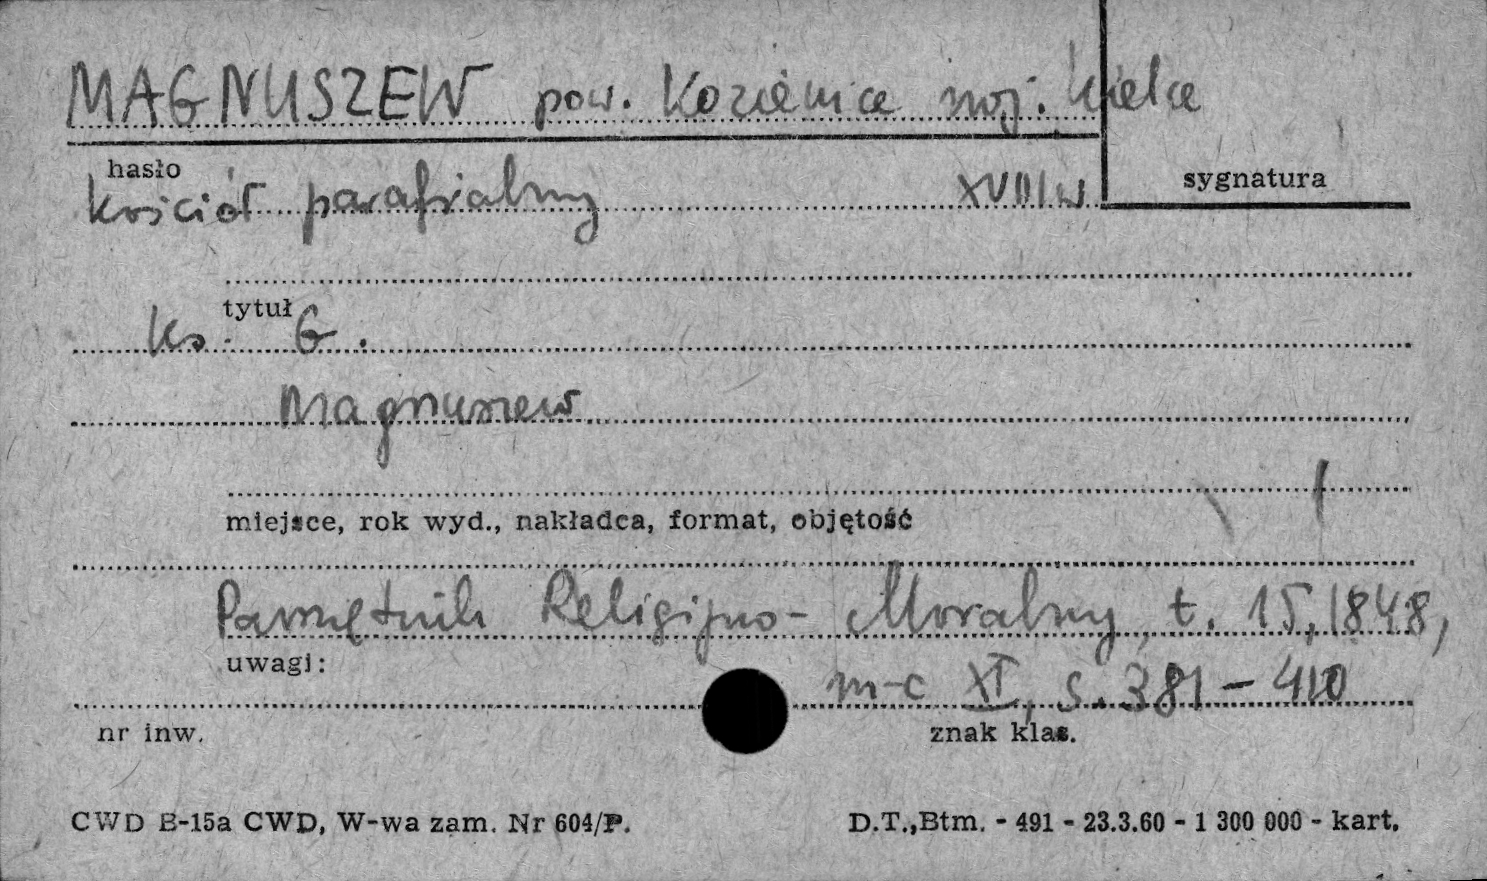 MAGNUSZEW pow. Kozienice woj. Kielce
hasło
sygnatura
kościół parafialny XVIII w.
tytuł
Ks. G.
Magnuszew
miejsce, rok wyd., nakładca, format, objętość
Pamiętnik Religijno-Moralny, t. 15, 1848,
uwagi:
m-c XI, s. 381-410
nr inw.
znak klas.
CWD B-15a CWD, W-wa zam. Nr 604/P.
D.T.,Btm. - 491 - 23.3.60 - 1 300 000 - kart.